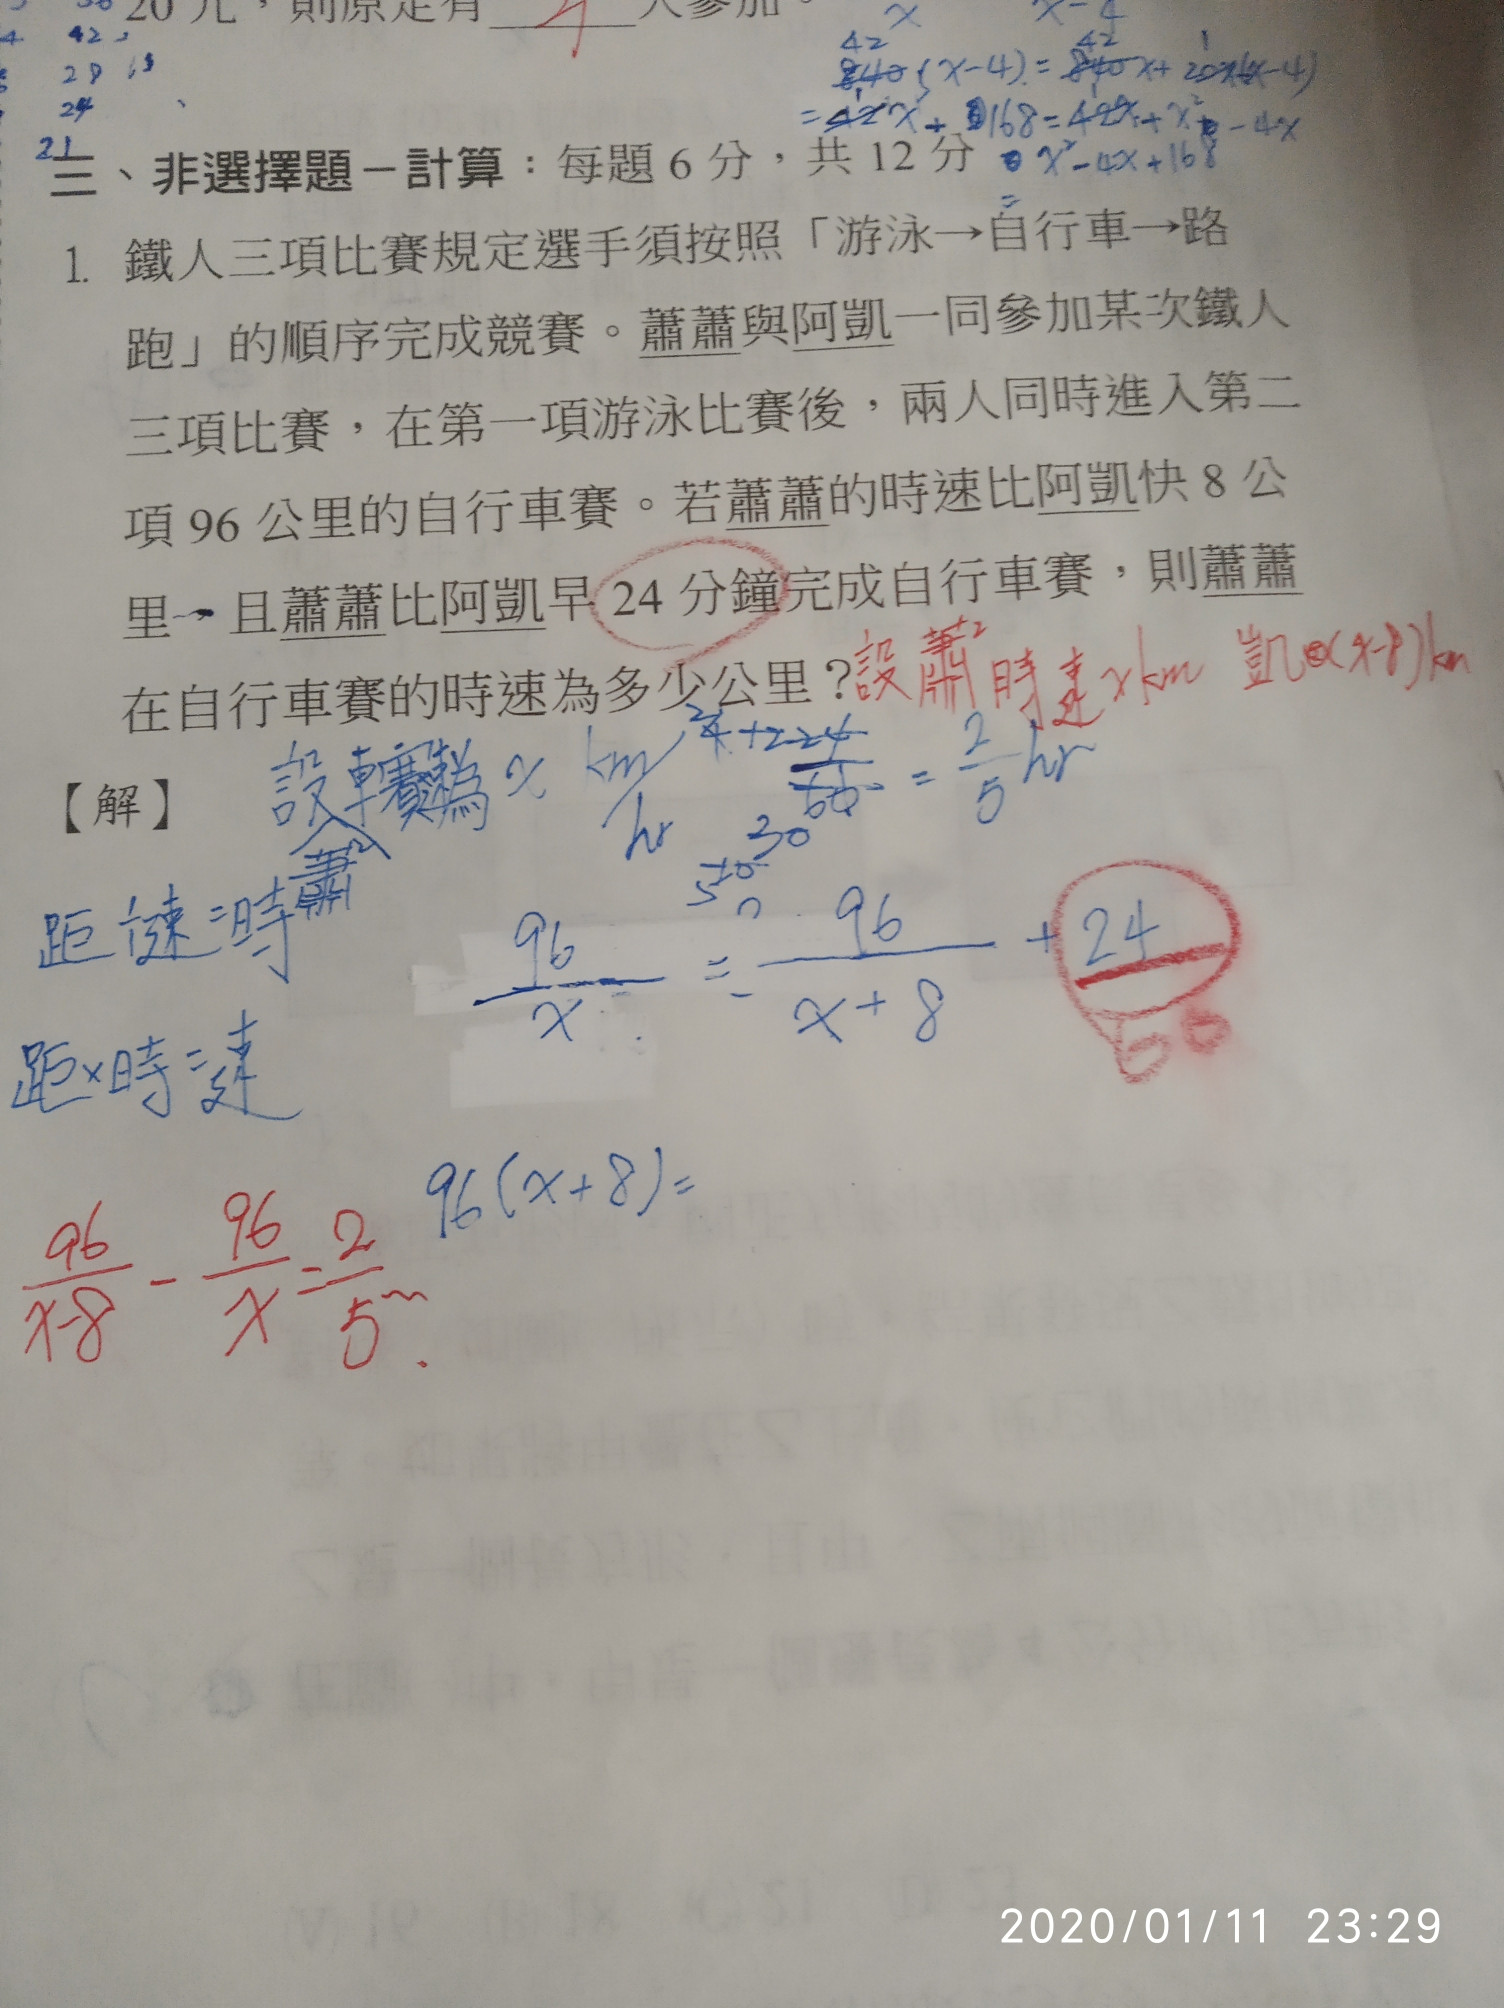 20 元，則原定有 人參加。
x x-4
42 42 1
840(x-4)=840x+20x(x-4)
=42x+168=42x+x²-4x
x²-4x+168
=
42
28
24
21
三、非選擇題－計算：每題 6 分，共 12 分
1. 鐵人三項比賽規定選手須按照「游泳→自行車→路
跑」的順序完成競賽。蕭蕭與阿凱一同參加某次鐵人
三項比賽，在第一項游泳比賽後，兩人同時進入第二
項 96 公里的自行車賽。若蕭蕭的時速比阿凱快 8 公
里，且蕭蕭比阿凱早 24 分鐘完成自行車賽，則蕭蕭
在自行車賽的時速為多少公里？
設蕭² 時速 x km 凱(x-8)km
【解】
設 車賽為 x km/hr
蕭²
24/60 = 2/5 hr
30
距 速=時
96/x = 96/(x+8) + 24/60
距×時=速
96(x+8)=
96/(x-8) - 96/x = 2/5
2020/01/11 23:29